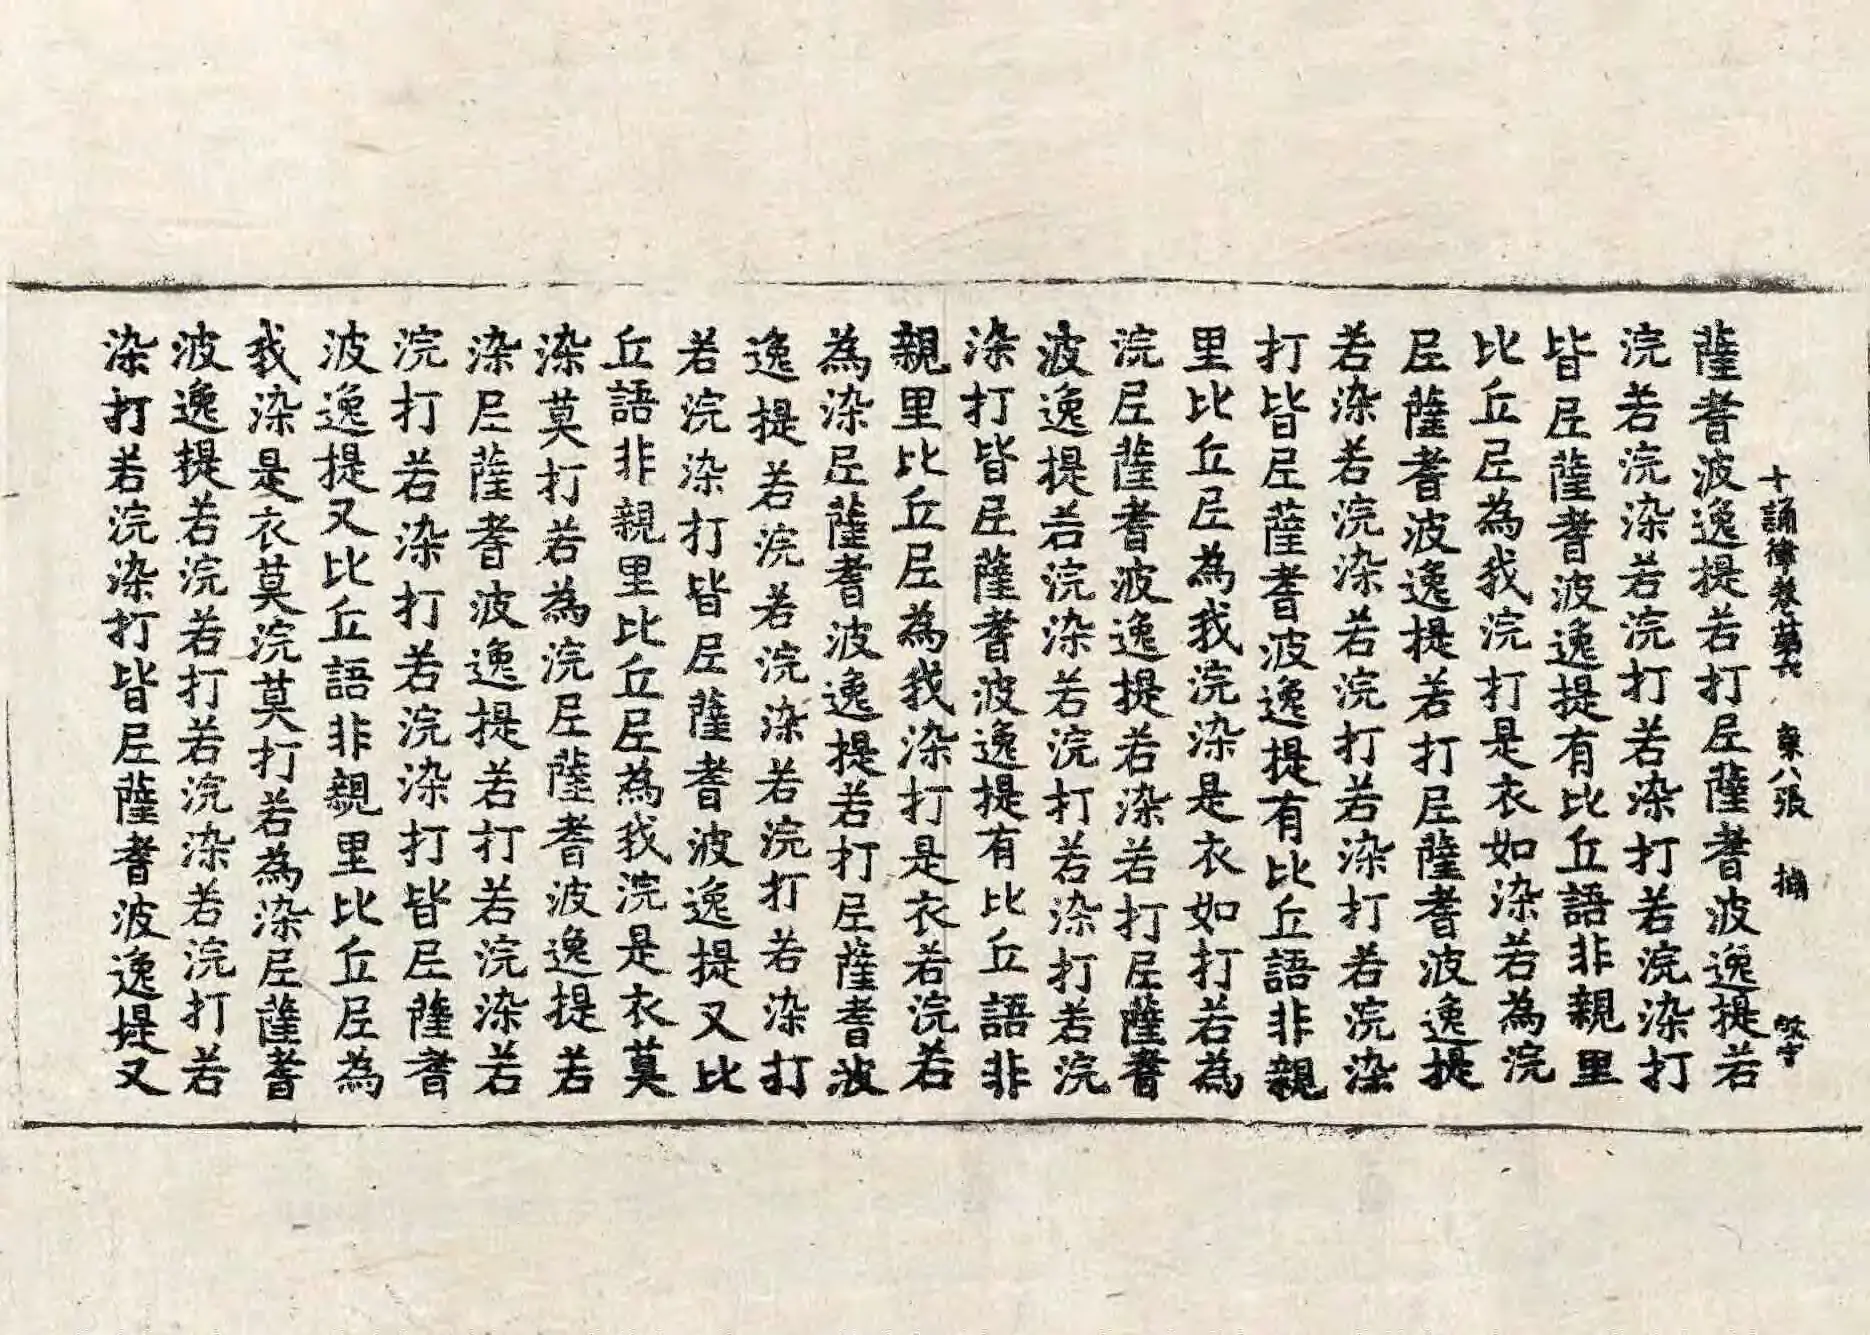 十誦律卷第六 第八張
薩耆波逸提若打尼薩耆波逸提若
浣若浣染若浣打若染打若浣染打
皆尼薩耆波逸提有比丘語非親里
比丘尼為我浣打是衣如染若為浣
尼薩耆波逸提若打尼薩耆波逸提
若染若浣染若浣打若染打若浣染
打皆尼薩耆波逸提有比丘語非親
里比丘尼為我浣染是衣如打若為
浣尼薩耆波逸提若染若打尼薩耆
波逸提若浣染若浣打若染打若浣
染打皆尼薩耆波逸提有比丘語非
親里比丘尼為我染打是衣若浣若
為染尼薩耆波逸提若打尼薩耆波
逸提若浣若浣染若浣打若染打
若浣染打皆尼薩耆波逸提又比
丘語非親里比丘尼為我浣是衣莫
染莫打若為浣尼薩耆波逸提若
染尼薩耆波逸提若打若浣染若
浣打若染打若浣染打皆尼薩耆
波逸提又比丘語非親里比丘尼為
我染是衣莫浣莫打若為染尼薩耆
波逸提若浣若打若浣染若浣打若
染打若浣染打皆尼薩耆波逸提又